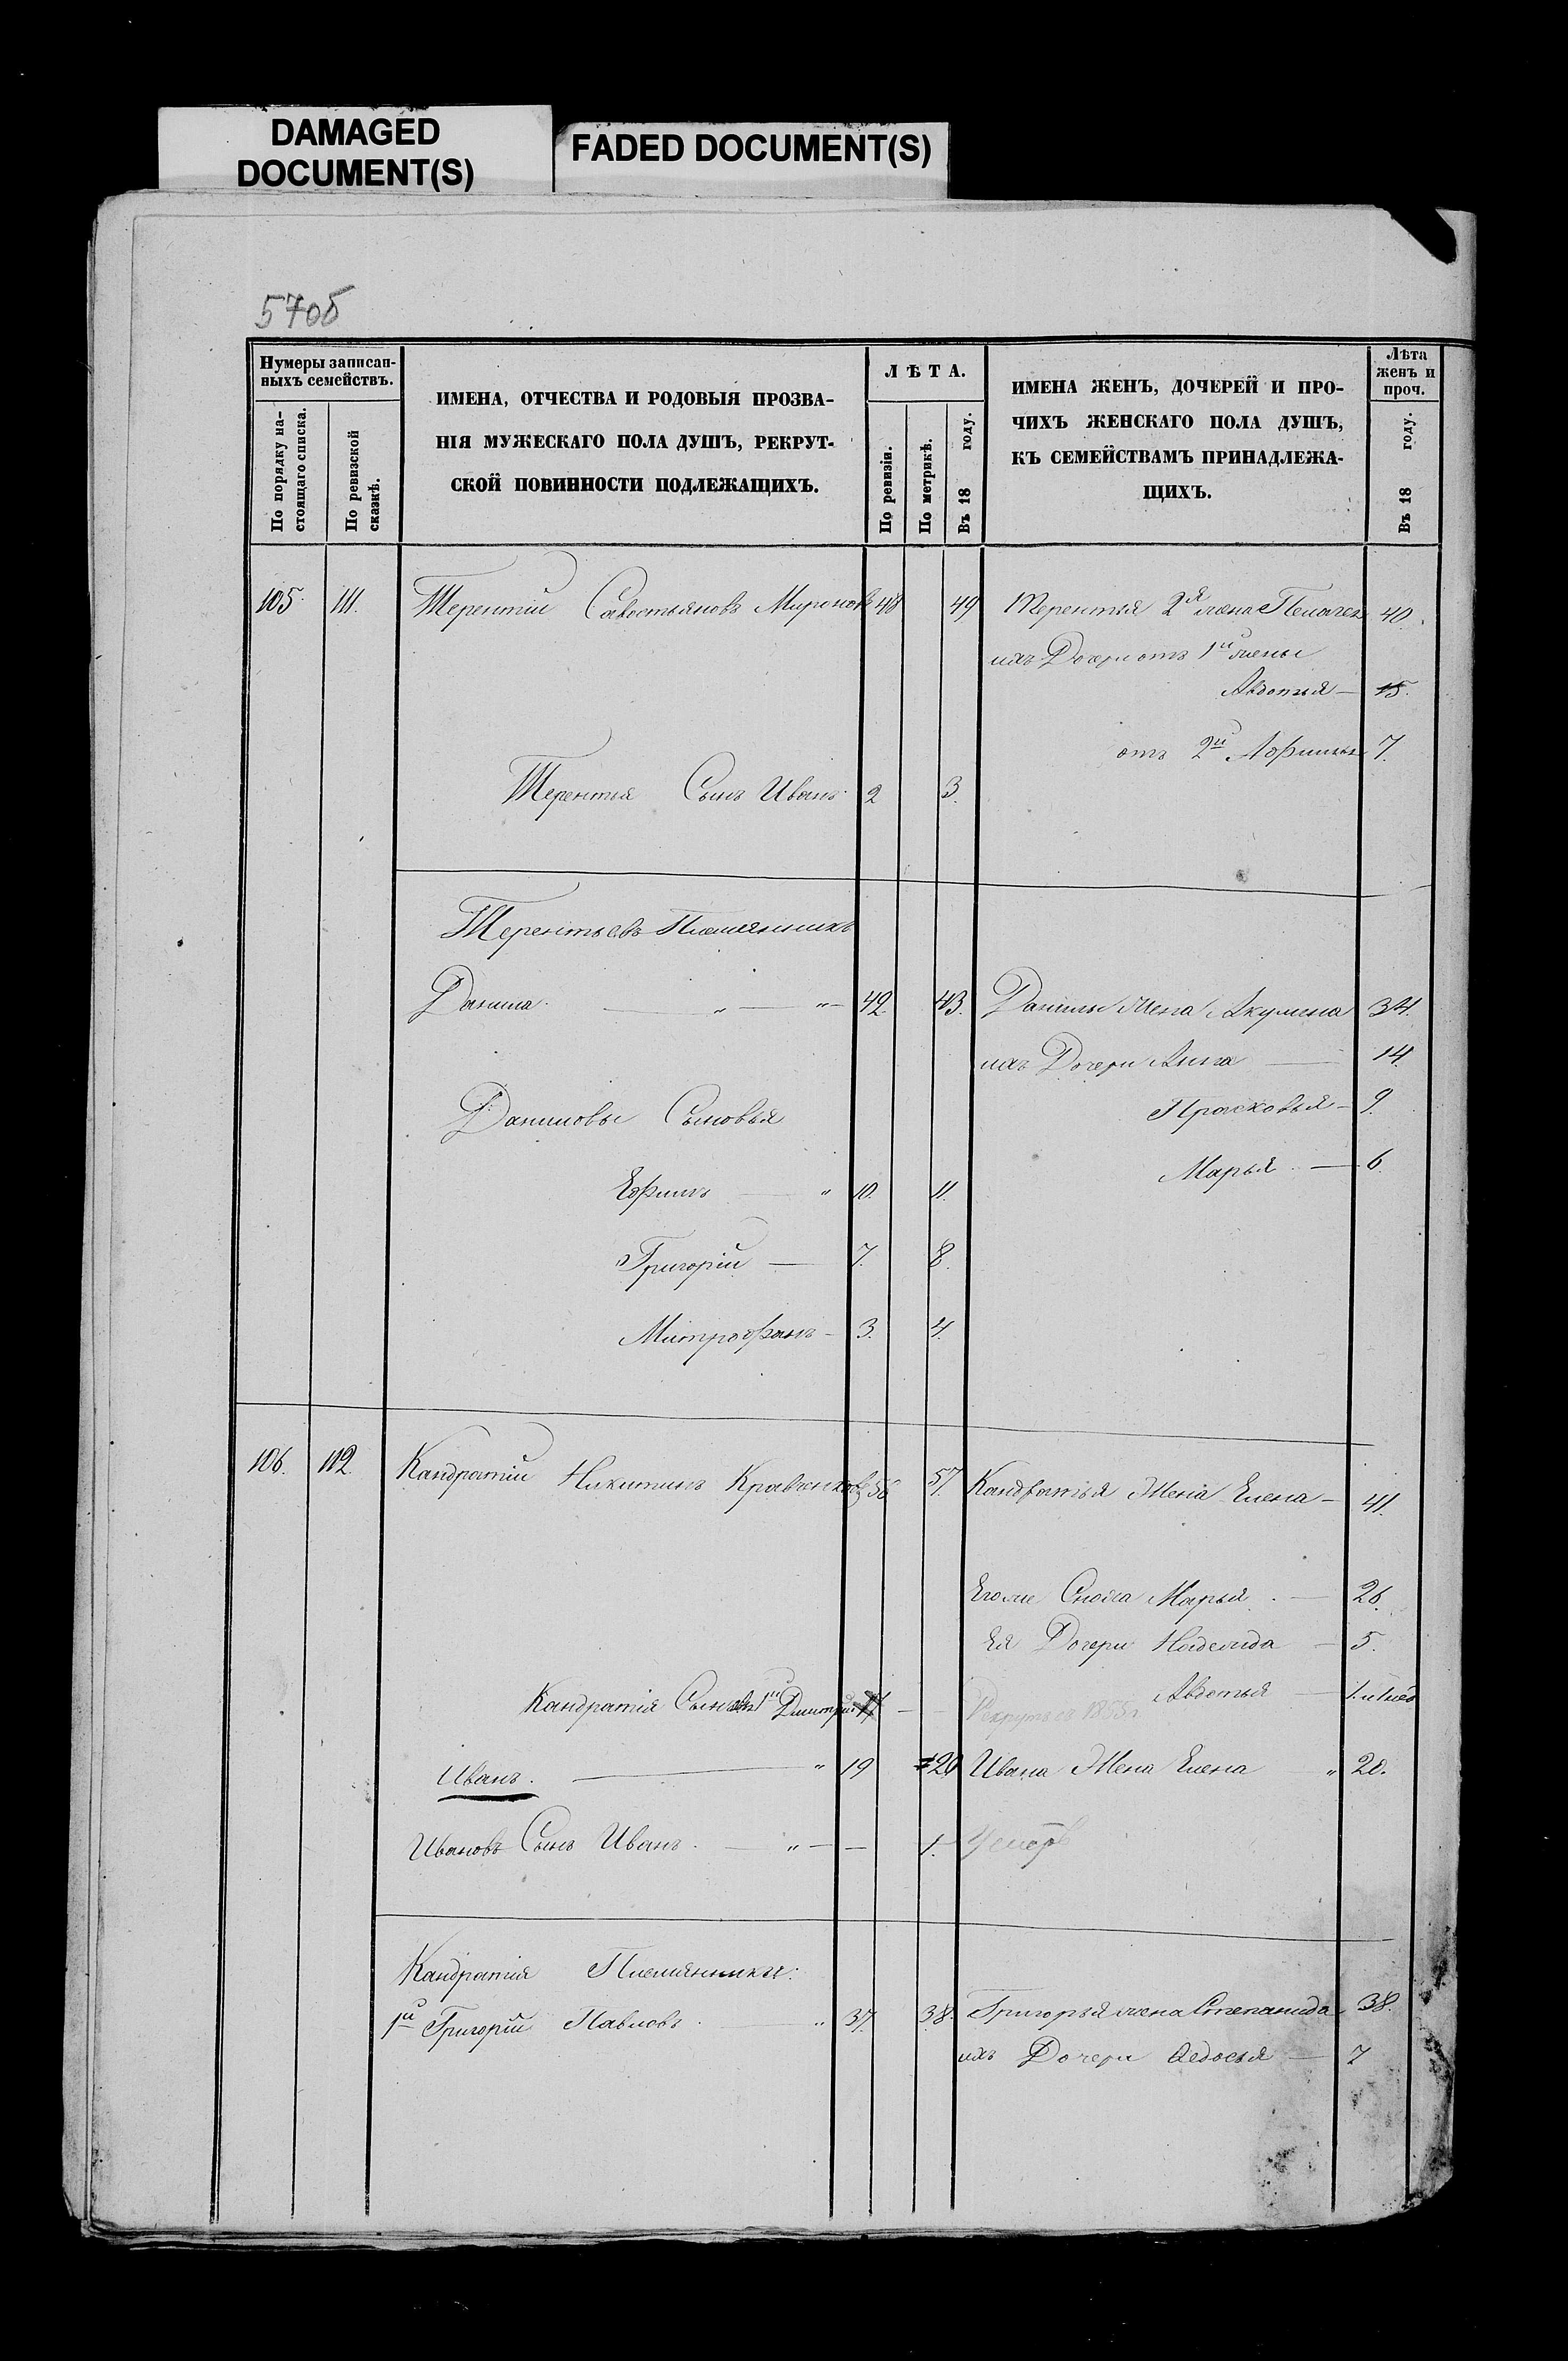 DAMAGED
DOCUMENT(S)
FADED DOCUMENT(S)
570б
Нумеры записан-
ныхъ семействъ.
По порядку на-
стоящаго списка.
По ревизской
сказкѣ.
ИМЕНА, ОТЧЕСТВА И РОДОВЫЯ ПРОЗВА-
НІЯ МУЖЕСКАГО ПОЛА ДУШЪ, РЕКРУТ-
СКОЙ ПОВИННОСТИ ПОДЛЕЖАЩИХЪ.
ЛѢТА.
По ревизіи.
По метрикѣ.
Въ 18 году.
ИМЕНА ЖЕНЪ, ДОЧЕРЕЙ И ПРО-
ЧИХЪ ЖЕНСКАГО ПОЛА ДУШЪ,
КЪ СЕМЕЙСТВАМЪ ПРИНАДЛЕЖА-
ЩИХЪ.
Лѣта
женъ и
проч.
Въ 18 году.
105. 111. Терентій Савостьяновъ Мироновъ 48 49 Терентья 2я жена Пелагея 40.
ихъ Дочери отъ 1й жены
Авдотья — 15.
отъ 2й Афимья 7.
Терентья Сынъ Иванъ 2 3.
Терентьевъ Племянникъ
Данила. — „ — „ — 42 43. Данилы Жена Акулина 34.
ихъ Дочери Анна — 14.
Прасковья — 9.
Даниловы Сыновья
Марья — 6.
Ефимъ — „ 10. 11.
Григорій — 7. 8.
Митрофанъ — 3. 4.
106. 112. Кандратій Никитинъ Кравченковъ 56 57. Кандратья Жена Елена — 41.
Егоже Сноха Марья. — 26.
Ея Дочери Надежда — 5.
Авдотья —
Кандратія 1й Дмитрій
Рекрутъ съ 1855г
Иванъ. — „ 19 20 Ивана Жена Елена „ 20.
Ивановъ Сынъ Иванъ. — „ — — 1.
Кандратія Племянники:
1й Григорій Павловъ. — „ 37. 38. Григорья жена Степанида 38.
ихъ Дочери Ѳедосья — 7